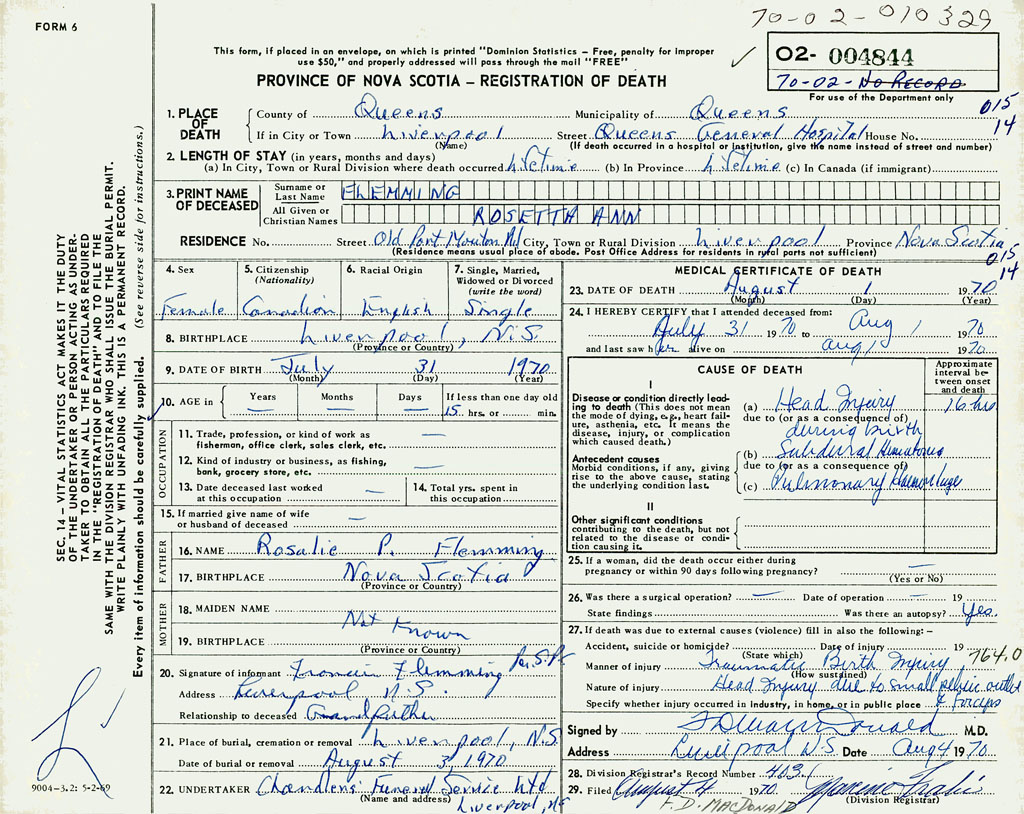 FORM 6
70-02-010329
This form, if placed in an envelope, on which is printed "Dominion Statistics – Free, penalty for improper
use $50," and properly addressed will pass through the mail "FREE"
PROVINCE OF NOVA SCOTIA – REGISTRATION OF DEATH
O2- 004844
70-02- No Record
For use of the Department only
015
14
1. PLACE OF DEATH
County of Queens Municipality of Queens
If in City or Town Liverpool Street Queens General Hospital House No.
(Name) (If death occurred in a hospital or institution, give the name instead of street and number)
2. LENGTH OF STAY (in years, months and days)
(a) In City, Town or Rural Division where death occurred Lifetime (b) In Province Lifetime (c) In Canada (if immigrant)
3. PRINT NAME OF DECEASED
Surname or Last Name FLEMMING
All Given or Christian Names ROSETTA ANN
RESIDENCE No. Street Old Port Mouton Rd City, Town or Rural Division Liverpool Province Nova Scotia
(Residence means usual place of abode. Post Office Address for residents in rural parts not sufficient)
015
14
4. Sex
Female
5. Citizenship (Nationality)
Canadian
6. Racial Origin
English
7. Single, Married, Widowed or Divorced (write the word)
Single
8. BIRTHPLACE Liverpool, N.S.
(Province or Country)
9. DATE OF BIRTH July 31 1970
(Month) (Day) (Year)
10. AGE in Years Months Days If less than one day old
— — — 15 hrs. or min.
OCCUPATION
11. Trade, profession, or kind of work as fisherman, office clerk, sales clerk, etc. —
12. Kind of industry or business, as fishing, bank, grocery store, etc. —
13. Date deceased last worked at this occupation —
14. Total yrs. spent in this occupation
15. If married give name of wife or husband of deceased —
FATHER
16. NAME Rosalie P. Flemming
17. BIRTHPLACE Nova Scotia
(Province or Country)
MOTHER
18. MAIDEN NAME
Not Known
19. BIRTHPLACE
(Province or Country)
20. Signature of informant Francis Flemming
Address Liverpool, N.S.
Relationship to deceased Grandfather
21. Place of burial, cremation or removal Liverpool, N.S.
Date of burial or removal August 3, 1970
22. UNDERTAKER Chandlers Funeral Service Ltd
(Name and address) Liverpool, NS
MEDICAL CERTIFICATE OF DEATH
23. DATE OF DEATH August 1 1970
(Month) (Day) (Year)
24. I HEREBY CERTIFY that I attended deceased from:
July 31 1970 to Aug 1 1970
and last saw her alive on Aug 1 1970
CAUSE OF DEATH
Approximate interval between onset and death
I
Disease or condition directly leading to death (This does not mean the mode of dying, e.g., heart failure, asthenia, etc. It means the disease, injury, or complication which caused death.)
(a) Head Injury 16 hrs
due to (or as a consequence of)
during birth
Antecedent causes
Morbid conditions, if any, giving rise to the above cause, stating the underlying condition last.
(b) Subdural Hematoma
due to (or as a consequence of)
(c) Pulmonary Haemorrhage
II
Other significant conditions
contributing to the death, but not related to the disease or condition causing it.
25. If a woman, did the death occur either during pregnancy or within 90 days following pregnancy? —
(Yes or No)
26. Was there a surgical operation? — Date of operation — 19
State findings Was there an autopsy? Yes.
27. If death was due to external causes (violence) fill in also the following: –
Accident, suicide or homicide? Date of injury 19
(State which)
Manner of injury Traumatic Birth Injury 764.0
(How sustained)
Nature of injury Head Injury due to small pelvic outlet
Specify whether injury occurred in industry, in home, or in public place & forceps
Signed by M.D.
Address Liverpool N.S Date Aug 4 1970
28. Division Registrar's Record Number 403
29. Filed August 4 1970
(Division Registrar)
F. D. MACDONALD
SEC. 14 – VITAL STATISTICS ACT MAKES IT THE DUTY
OF THE UNDERTAKER OR PERSON ACTING AS UNDER-
TAKER TO OBTAIN ALL THE PARTICULARS REQUIRED
IN THE "REGISTRATION OF DEATH" AND TO FILE THE
SAME WITH THE DIVISION REGISTRAR WHO SHALL ISSUE THE BURIAL PERMIT.
WRITE PLAINLY WITH UNFADING INK. THIS IS A PERMANENT RECORD.
Every item of information should be carefully supplied. (See reverse side for instructions.)
9004-3.2: 5-2-69